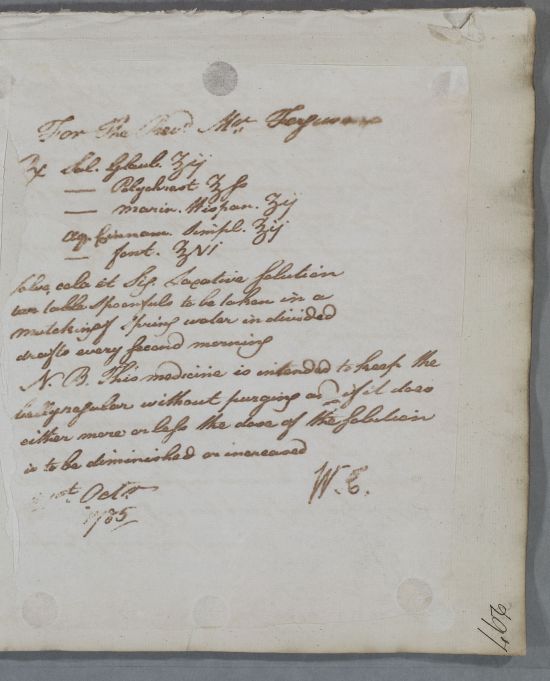 For The Revd. Mr. Ferguson
℞ Sal. Glaub. ℥ij
— Polychrest ℥ss
— marin. Hispan. ℥ij
Aq. Cinnam. Simpl. ℥ij
— font. ℥VI
Solve, cola et Sig. Laxative Solution
two table Spoonfuls to be taken in a
mutchkin of Spring water in divided
drafts every Second morning
N.B. This medicine is intended to keep the
belly regular without purging if it does
either more or less the dose of the Solution
is to be diminished or increased
Octr.
W. C.
1785
467